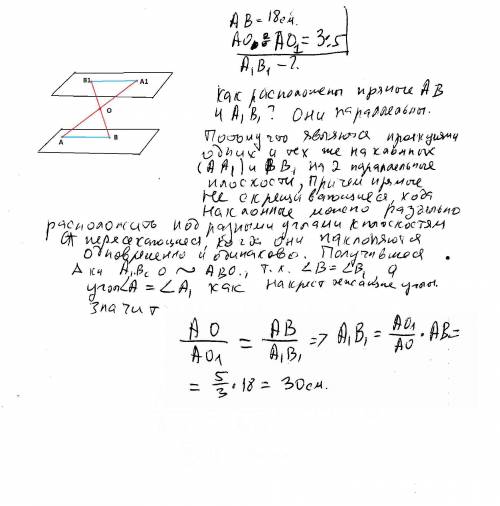 AB = 18 см.
AO : AO₁ = 3:5
A₁B₁ - ?
B1 A1
O
A B
Как расположены прямые AB
и A₁B₁? Они параллельны.
одних и тех же наклонных
(AA₁) и BB₁ на 2 параллельные
плоскости, причем прямые
не скрещивающиеся, когда
наклонные можно раздельно
расположить под разными углами к плоскостям
пересекающиеся, когда они наклоняются
одновременно и одинаково. Получившиеся
A₁B₁O ~ ABO, т.к. ∠B = ∠B₁, а
угол ∠A = ∠A₁ как накрест лежащие углы.
Значит
AO / AO₁ = AB / A₁B₁ => A₁B₁ = AO₁ / AO · AB =
= 5/3 · 18 = 30 см.